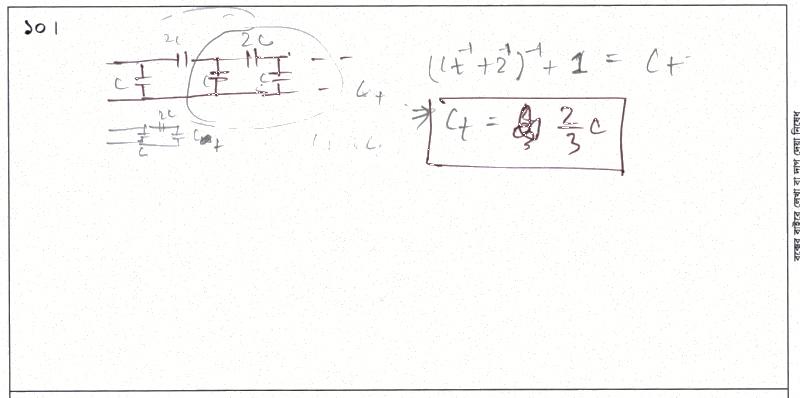 ১০।
2C
2C
C
C
C
C_t
2C
C
C_t
(C_t^{-1} + 2^{-1})^{-1} + 1 = C_t
⇒ C_t = 2/3 C
বক্সের বাইরে লেখা বা দাগ দেয়া নিষেধ